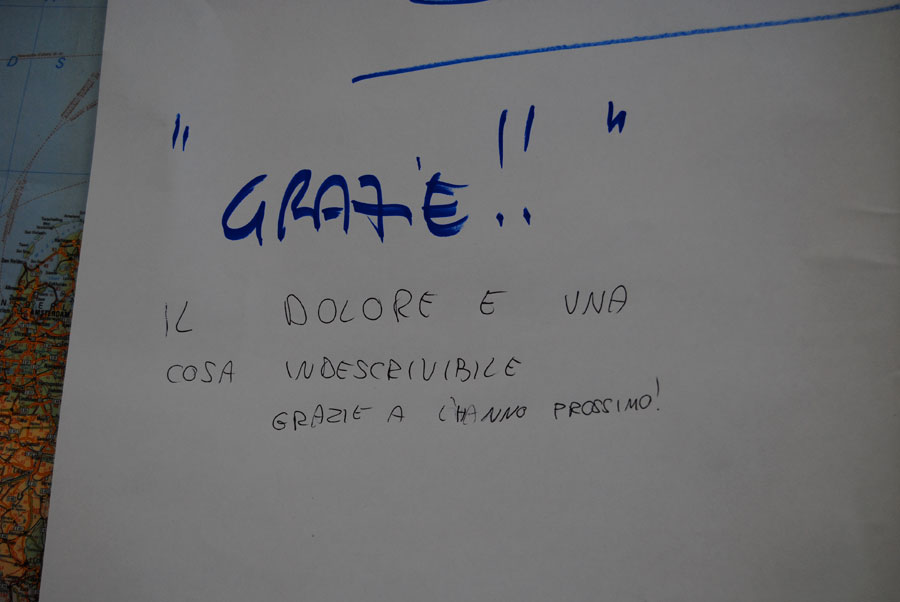 " GRAZIE!! "
IL DOLORE E UNA
COSA INDESCRIVIBILE
GRAZIE A L'HANNO PROSSIMO!